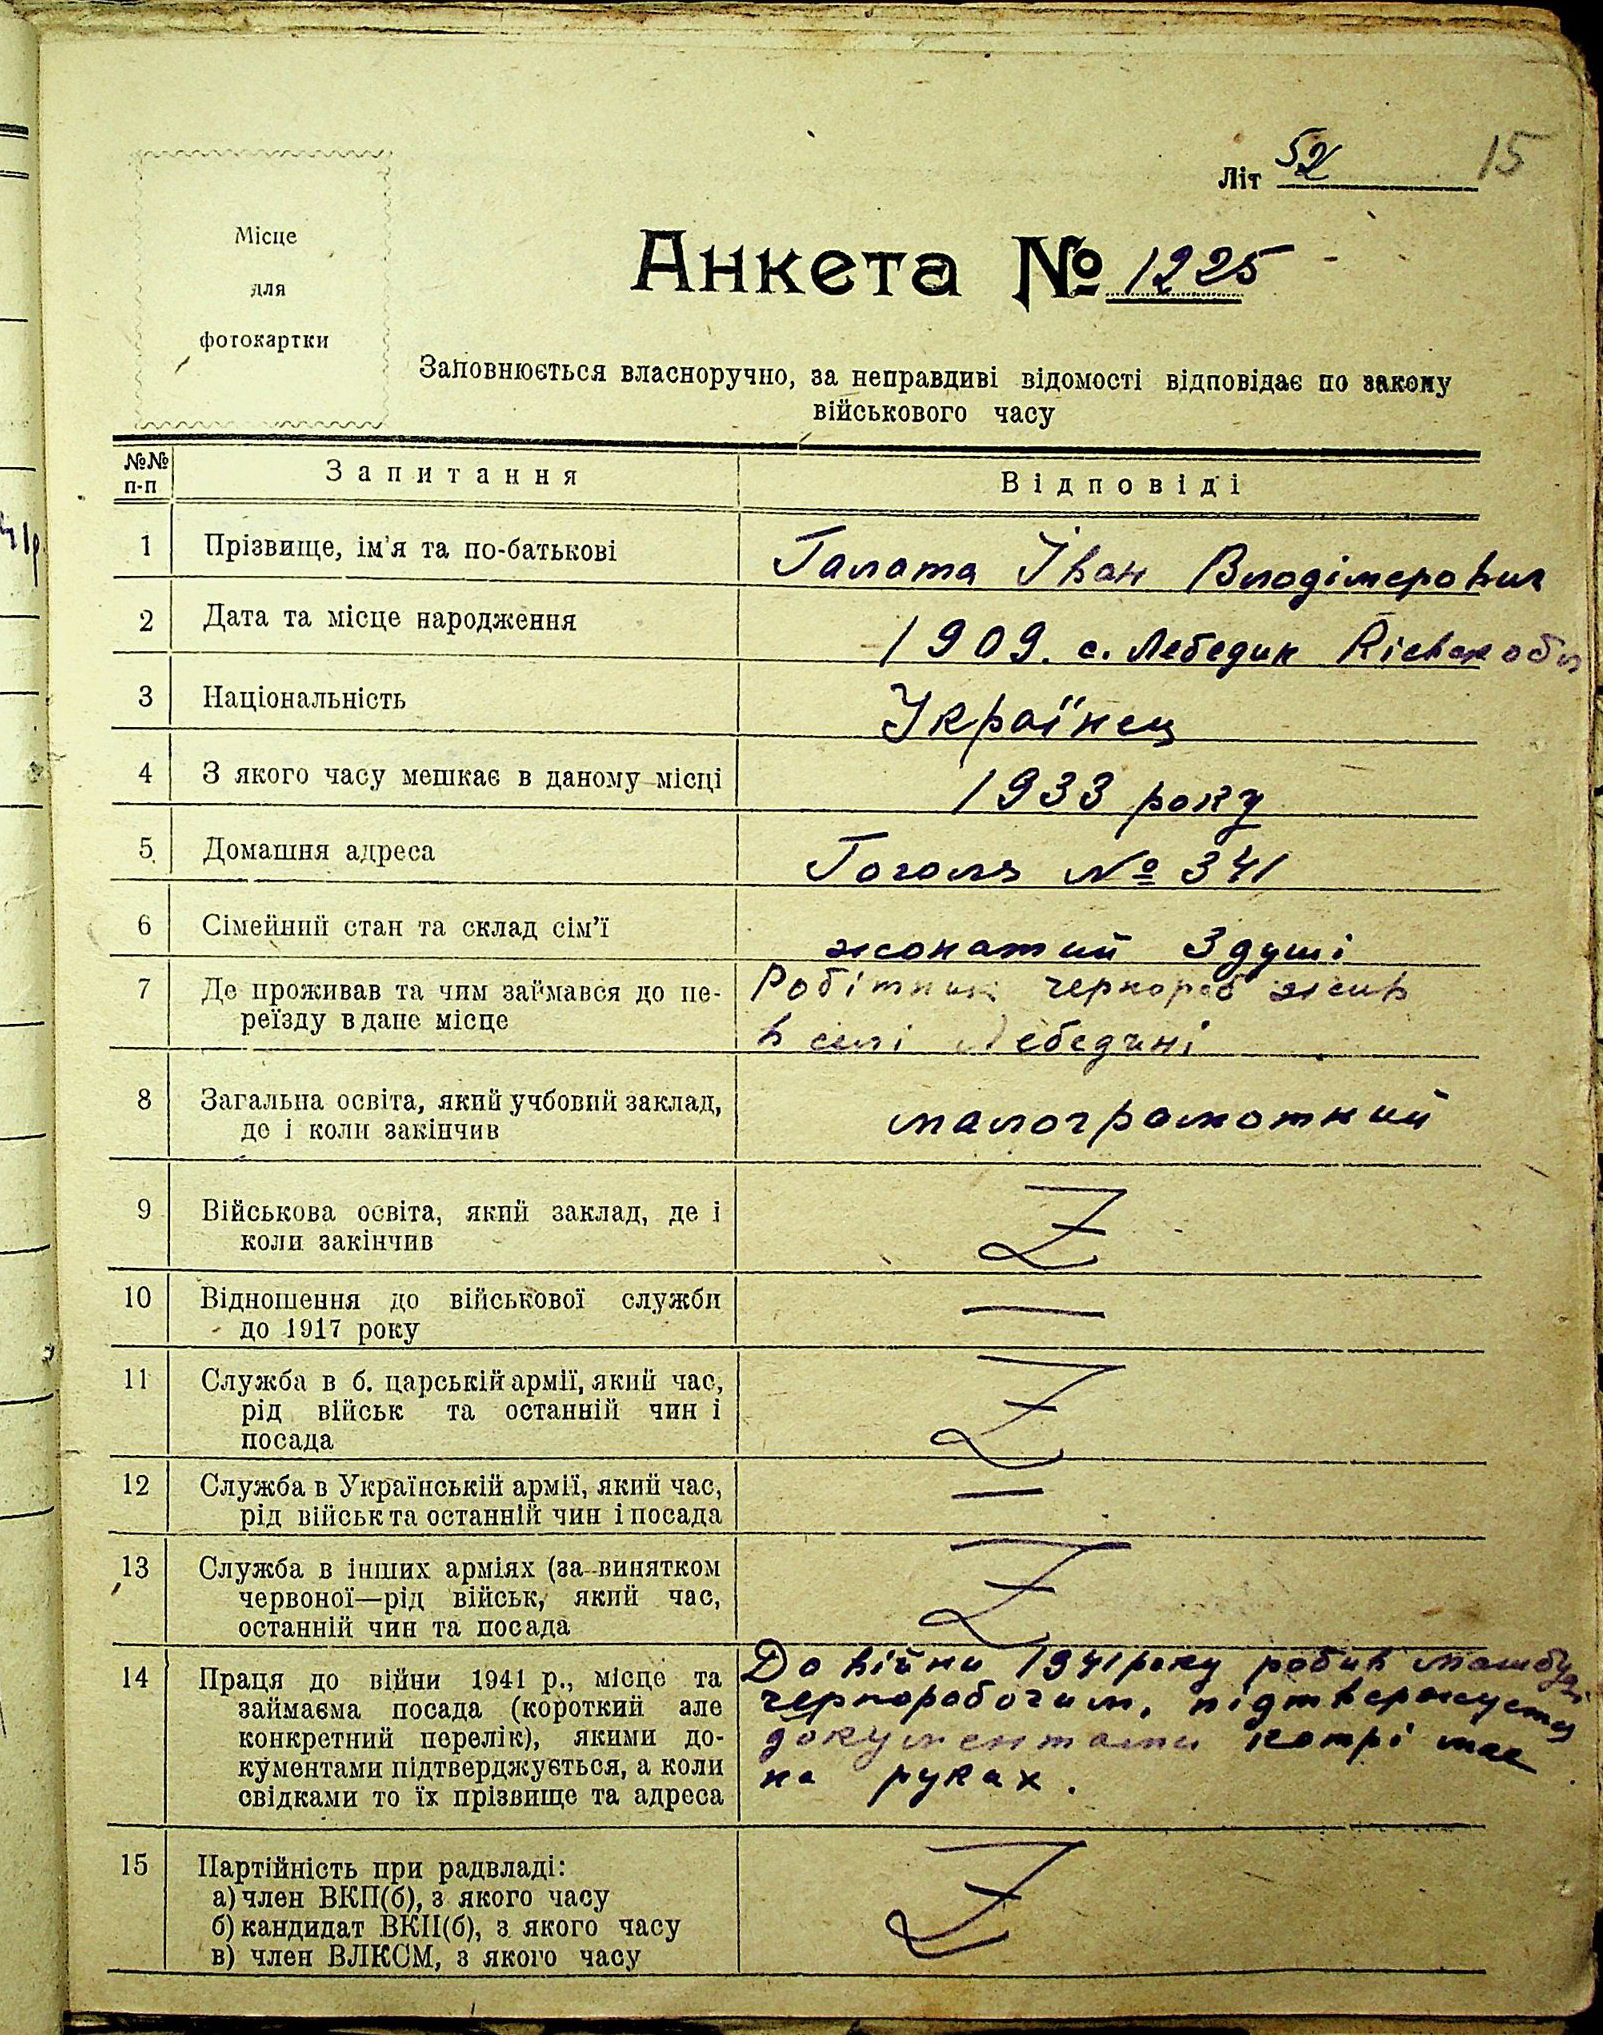 15
Літ 52
Місце
для
фотокартки
Анкета № 1225
Заповнюється власноручно, за неправдиві відомості відповідає по закону
військового часу
№№ п-п Запитання Відповіді
1 Прізвище, ім'я та по-батькові Галата Іван Влодімерович
2 Дата та місце народження 1909. с. Лебедин Кієвск обл
3 Національність Українец
4 З якого часу мешкає в даному місці 1933 року
5 Домашня адреса Гоголя № 341
6 Сімейний стан та склад сім'ї жонатий 3 душі
7 Де проживав та чим займався до пе- Робітник чернороб жив
реїзду в дане місце в селі Лебедині
8 Загальна освіта, який учбовий заклад, малограмотний
де і коли закінчив
9 Військова освіта, який заклад, де і Z
коли закінчив
10 Відношення до військової служби —
до 1917 року
11 Служба в б. царській армії, який час, Z
рід військ та останній чин і
посада
12 Служба в Українській армії, який час, —
рід військ та останній чин і посада
13 Служба в інших арміях (за винятком Z
червоної—рід військ, який час,
останній чин та посада
14 Праця до війни 1941 р., місце та До війни 1941 року робив
займаєма посада (короткий але чернорабочим,
конкретний перелік), якими до- документами котрі має
кументами підтверджується, а коли на руках.
свідками то їх прізвище та адреса
15 Партійність при радвладі: Z
а) член ВКП(б), з якого часу
б) кандидат ВКП(б), з якого часу
в) член ВЛКСМ, з якого часу